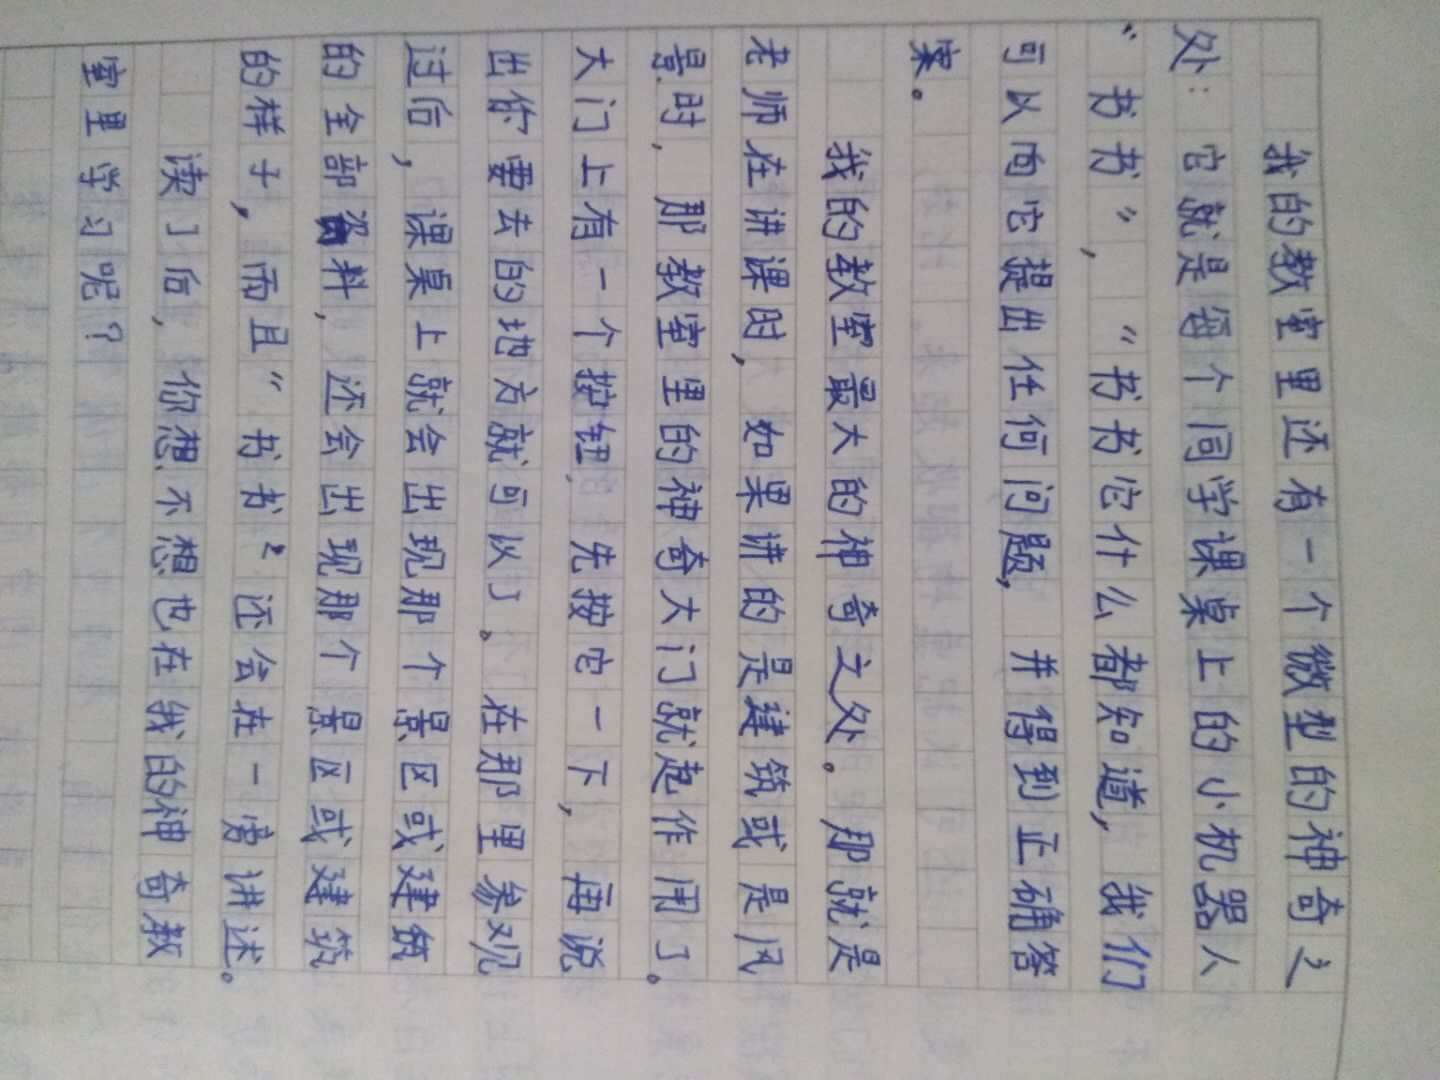 我的教室里还有一个微型的神奇之
处：它就是每个同学课桌上的小机器人
“书书”，“书书它什么都知道，我们
可以向它提出任何问题，并得到正确答
案。
我的教室最大的神奇之处。那就是
老师在讲课时，如果讲的是建筑或是风
景时，那教室里的神奇大门就起作用了。
大门上有一个按钮，先按它一下，再说
出你要去的地方就可以了。在那里参观
过后，课桌上就会出现那个景区或建筑
的全部资料，还会出现那个景区或建筑
的样子，而且“书书”还会在一旁讲述。
读了后，你想不想也在我的神奇教
室里学习呢？